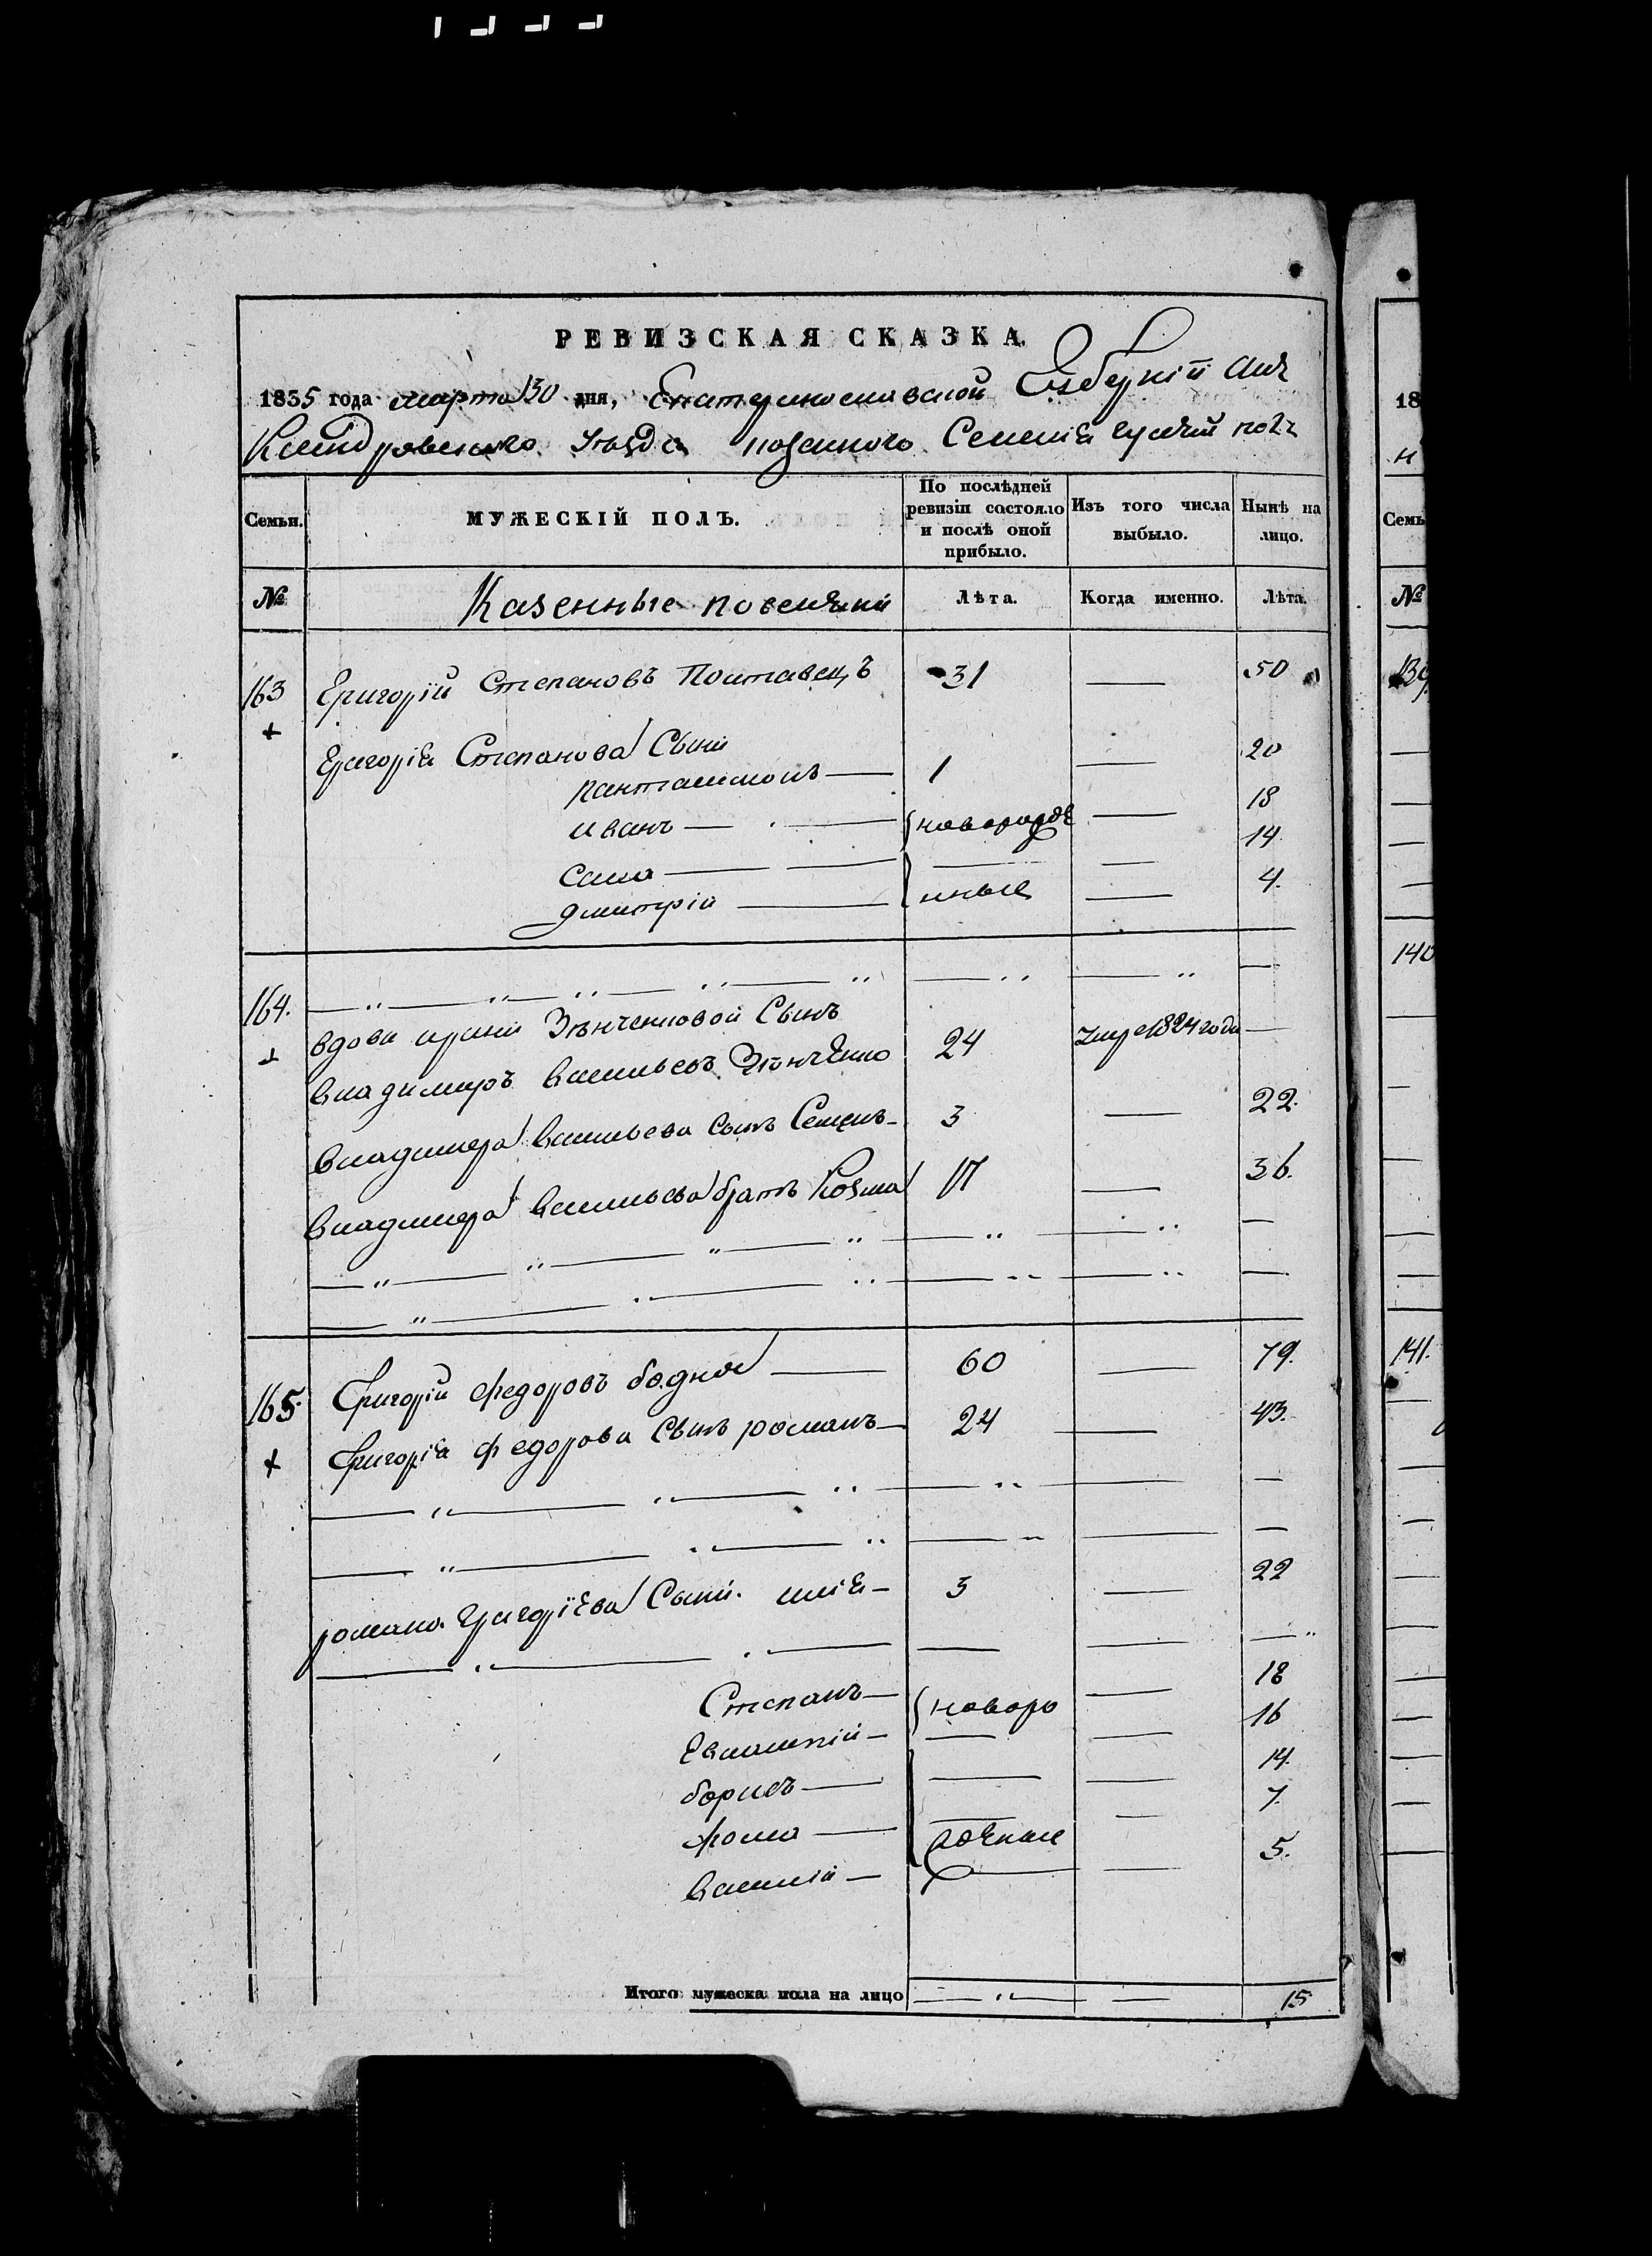 РЕВИЗСКАЯ СКАЗКА.
1835 года марта 30 дня, Екатеринославской Губерніи Алек
сандровскаго уѣзда казеннаго Селенія
Семьи.
МУЖЕСКІЙ ПОЛЪ.
По послѣдней ревизіи состояло и послѣ оной прибыло.
Изъ того числа выбыло.
Нынѣ на лицо.
№ Казенные поселяни Лѣта. Когда именно. Лѣта.
163 Григорій Степановъ Полтавецъ 31 — 50
+
Григорія Степанова Сыни
пантелимонъ — 1 — 20
иванъ — новорожде — 18
сава — — — 14
дмитрій — нные — 4.
164. — " — " — " — " — " — " — " —
вдови ирини Зѣнченковой Сынъ
владимиръ васильевъ Зѣнченко 24 умре 1824 года —
владимера васильева сынъ Семенъ — 3 — 22.
владимера васильева братъ Козма 17 — 36.
165. Григорій федоровъ бодна — 60 — 79.
+ Григорія федорова Сынъ романъ — 24 — 43.
романа Григоріева Сыни. илія — 3 — 22
Степанъ — новоро — 18
Евлампій — — — 16
борисъ — — — 14.
фома — — — 7.
василій — жденые — 5.
Итого мужеска пола на лицо — " — — 15
18
Семь
№
139
140
141.